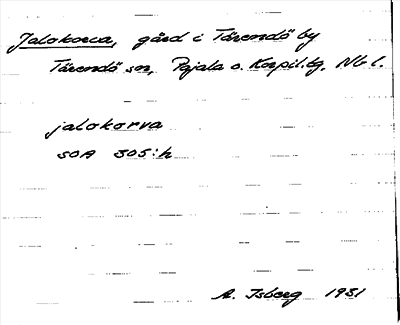 Jalokorva, gård i Tärendö by
Tärendö sn, Pajala o. Korpil. tg. Nb l.
jalokorva
SOA 305:h
A. Isberg 1931